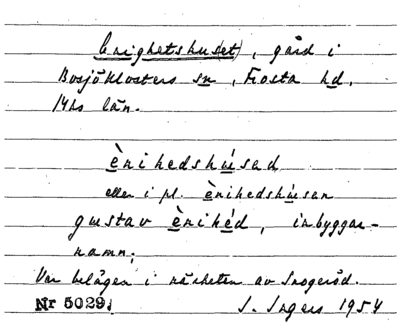 Enighetshuset), gård i
Bosjöklosters sn, Frosta hd,
Mhs län.
ènihedshúsad
eller i pl. ènihedshúsan
gustav ènihéd, inbyggar-
namn;
Var belägen i närheten av Snogeröd.
Nr 5029. I. Ingers 1954